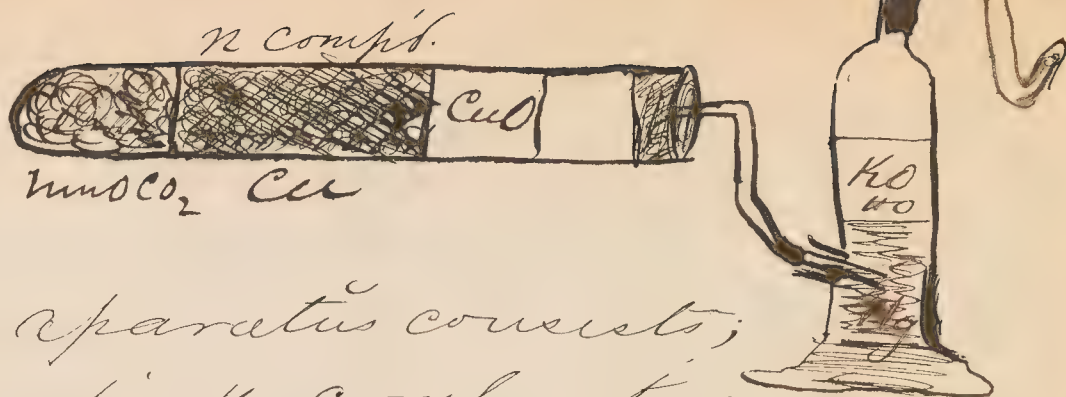 n comp'd.
CuO
MnOCO₂ Cu
KO
HO
Hg
aparatus consists;